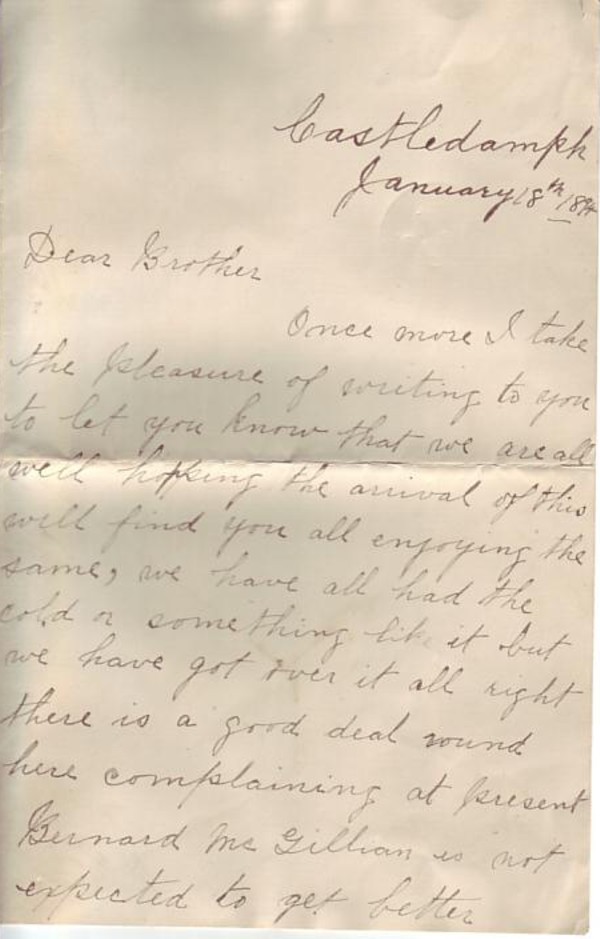 Castledamph
January 18th 189
Dear Brother
Once more I take
the pleasure of writing to you
to let you know that we are all
well hopeing the arrival of this
will find you all enjoying the
same, we have all had the
cold or something like it but
we have got over it all right
there is a good deal round
here complaining at present
Bernard Mc Gillian is not
expected to get better